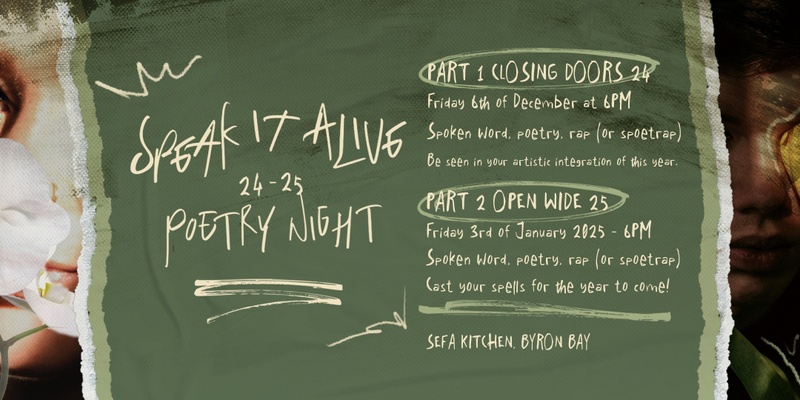 SPEAK IT ALIVE
24-25
POETRY NIGHT
PART 1 CLOSING DOORS 24
Friday 6th of December at 6PM
Spoken Word, poetry, rap (or spoetrap)
Be seen in your artistic integration of this year.
PART 2 OPEN WIDE 25
Friday 3rd of January 2025 - 6PM
Spoken Word, poetry, rap (or spoetrap)
Cast your spells for the year to come!
SEFA KITCHEN, BYRON BAY